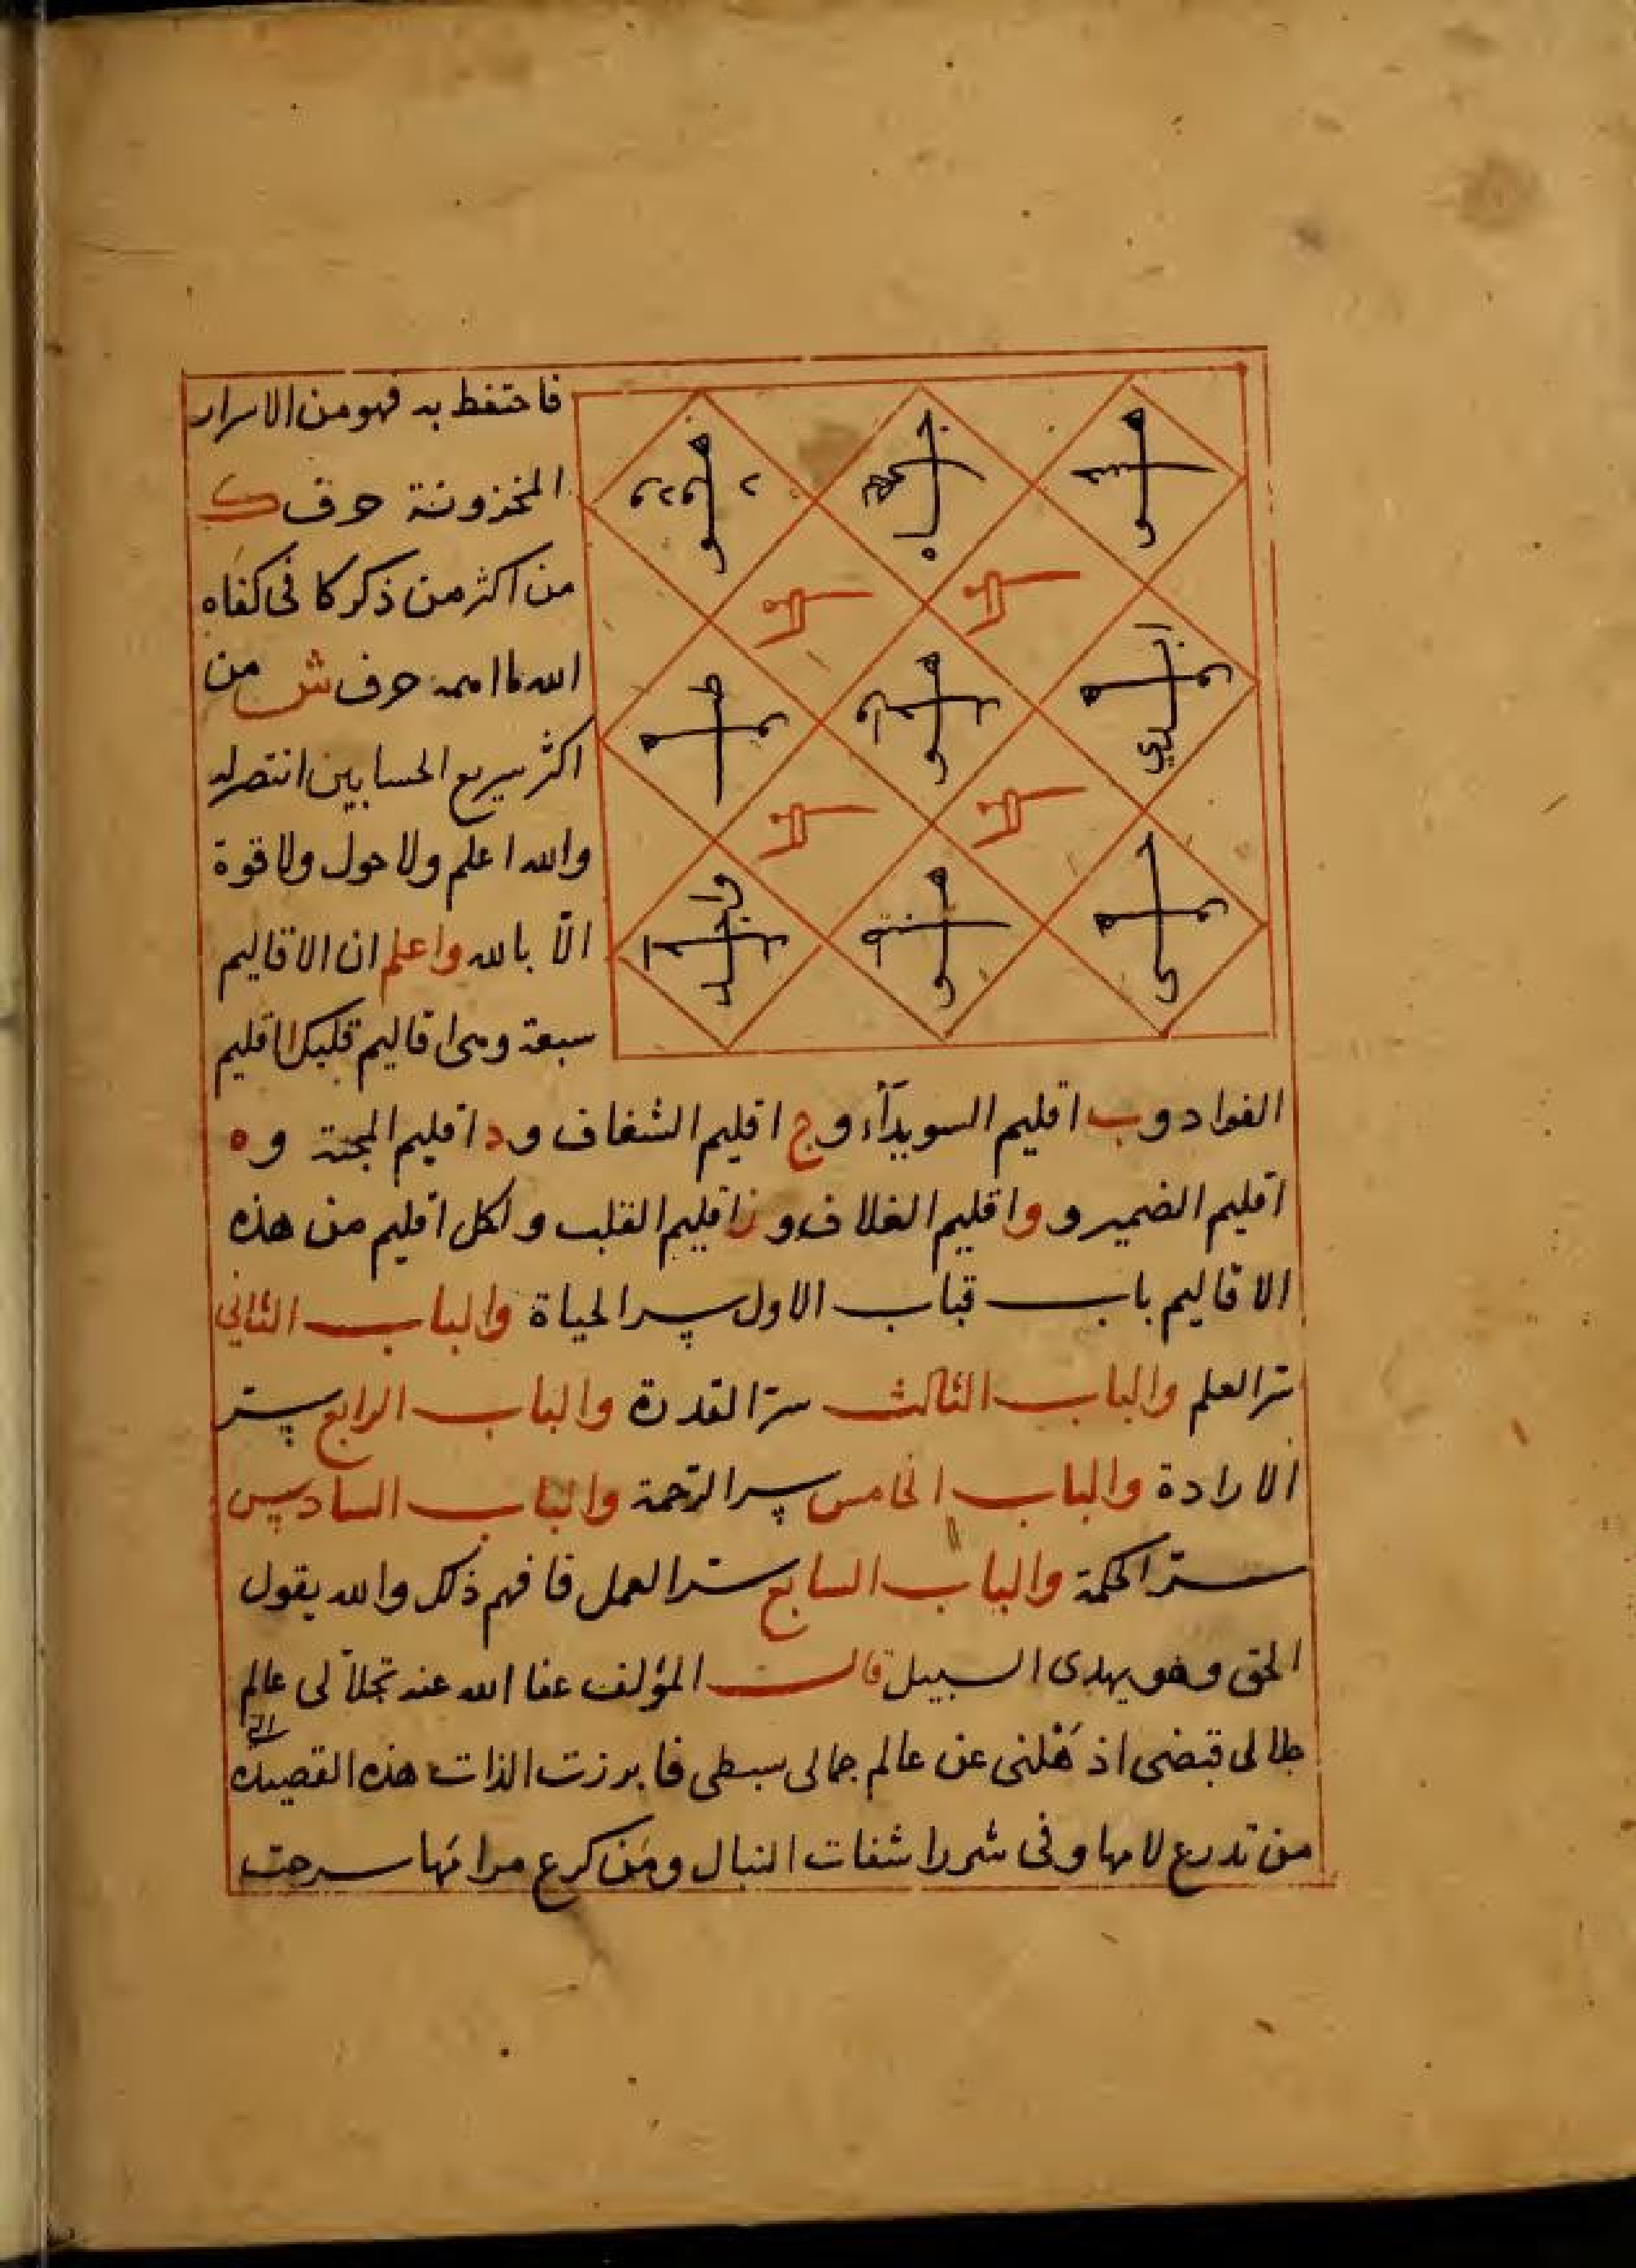 فاحتفظ به فهو من الاسرار
المخزونة حرف ك
من اكثر من ذكر كا فى كفاه
الله ما اهمه حرف ش من
اكثر سريع الحسابين انتصر له
والله اعلم ولا حول ولا قوة
الّا بالله واعلم ان الاقاليم
سبعة وهى اقاليم قلبك ا اقليم
الفواد وب اقليم السويدآء وج اقليم الشغاف ود اقليم المجنة وه
اقليم الضمير وو اقليم الغلاف وز اقليم القلب ولكل اقليم من هذه
الاقاليم باب فباب الاول سر الحياة والباب الثانى
سرّ العلم والباب الثالث سرّ القدرة والباب الرابع سرّ
الارادة والباب الخامس سر الرّحمة والباب السادس
سرّ الحكمة والباب السابع سرّ العمل فافهم ذلك والله يقول
الحق وهو يهدى السبيل قال المؤلف عفا الله عنه تجلّا لى عالم
قبضى اذ هَلنى عن عالم جمالى بسطى فابرزت الذات هذه القصيدة
من تدرع لامها وفى شر راشفات النبال ومَن كرع سرحت